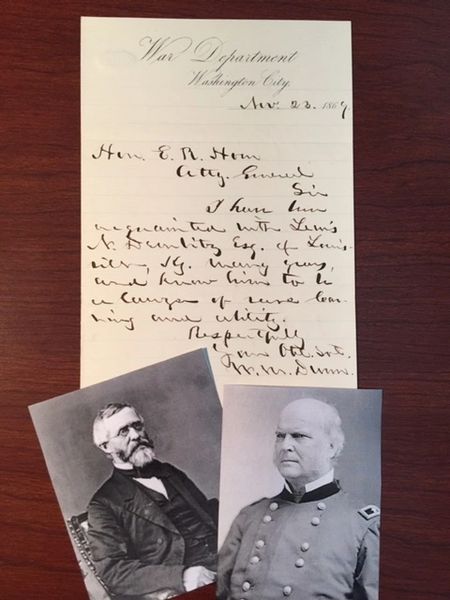 War Department
Washington City.
Nov. 23. 1869
Hon. E. R. Hoar
Atty. General
Sir
I have been
acquainted with Lewis
N. Dembitz Esq. of Louis-
ville, Ky. many years,
and know him to be
a lawyer of rare lear-
ning and ability.
Respectfully
Your Obt. Svt.
W. M. Dunn.